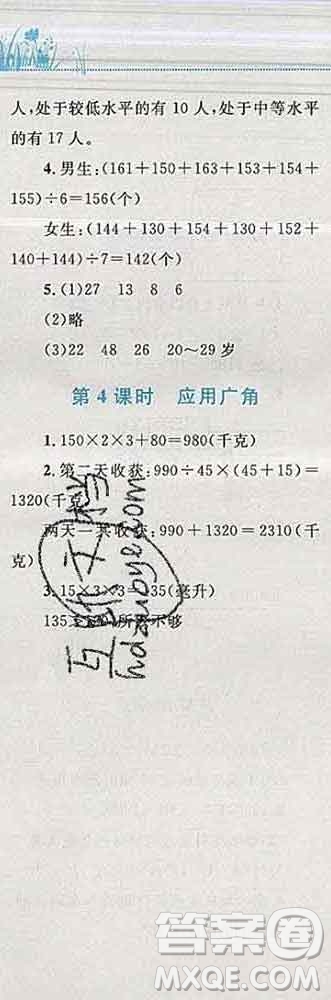 人，处于较低水平的有 10 人，处于中等水平
的有 17 人。
4. 男生：(161＋150＋163＋153＋154＋
155)÷6＝156(个)
女生：(144＋130＋154＋130＋152＋
140＋144)÷7＝142(个)
5. (1)27 13 8 6
(2)略
(3)22 48 26 20～29 岁
第 4 课时 应用广角
1. 150×2×3＋80＝980(千克)
2. 第二天收获：990÷45×(45＋15)＝
1320(千克)
两天一共收获：990＋1320＝2310(千
克)
3. 15×3×3＝135(毫升)
135 所 不够
hdzuoye.com
答案圈
MXQE.COM